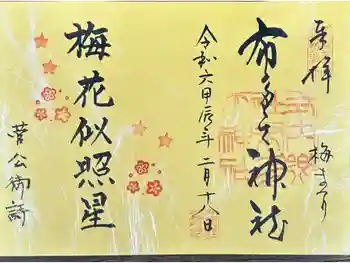 奉拝
梅まつり
布多天神社
令和六甲辰年 二月十八日
梅花似照星
菅公御詩